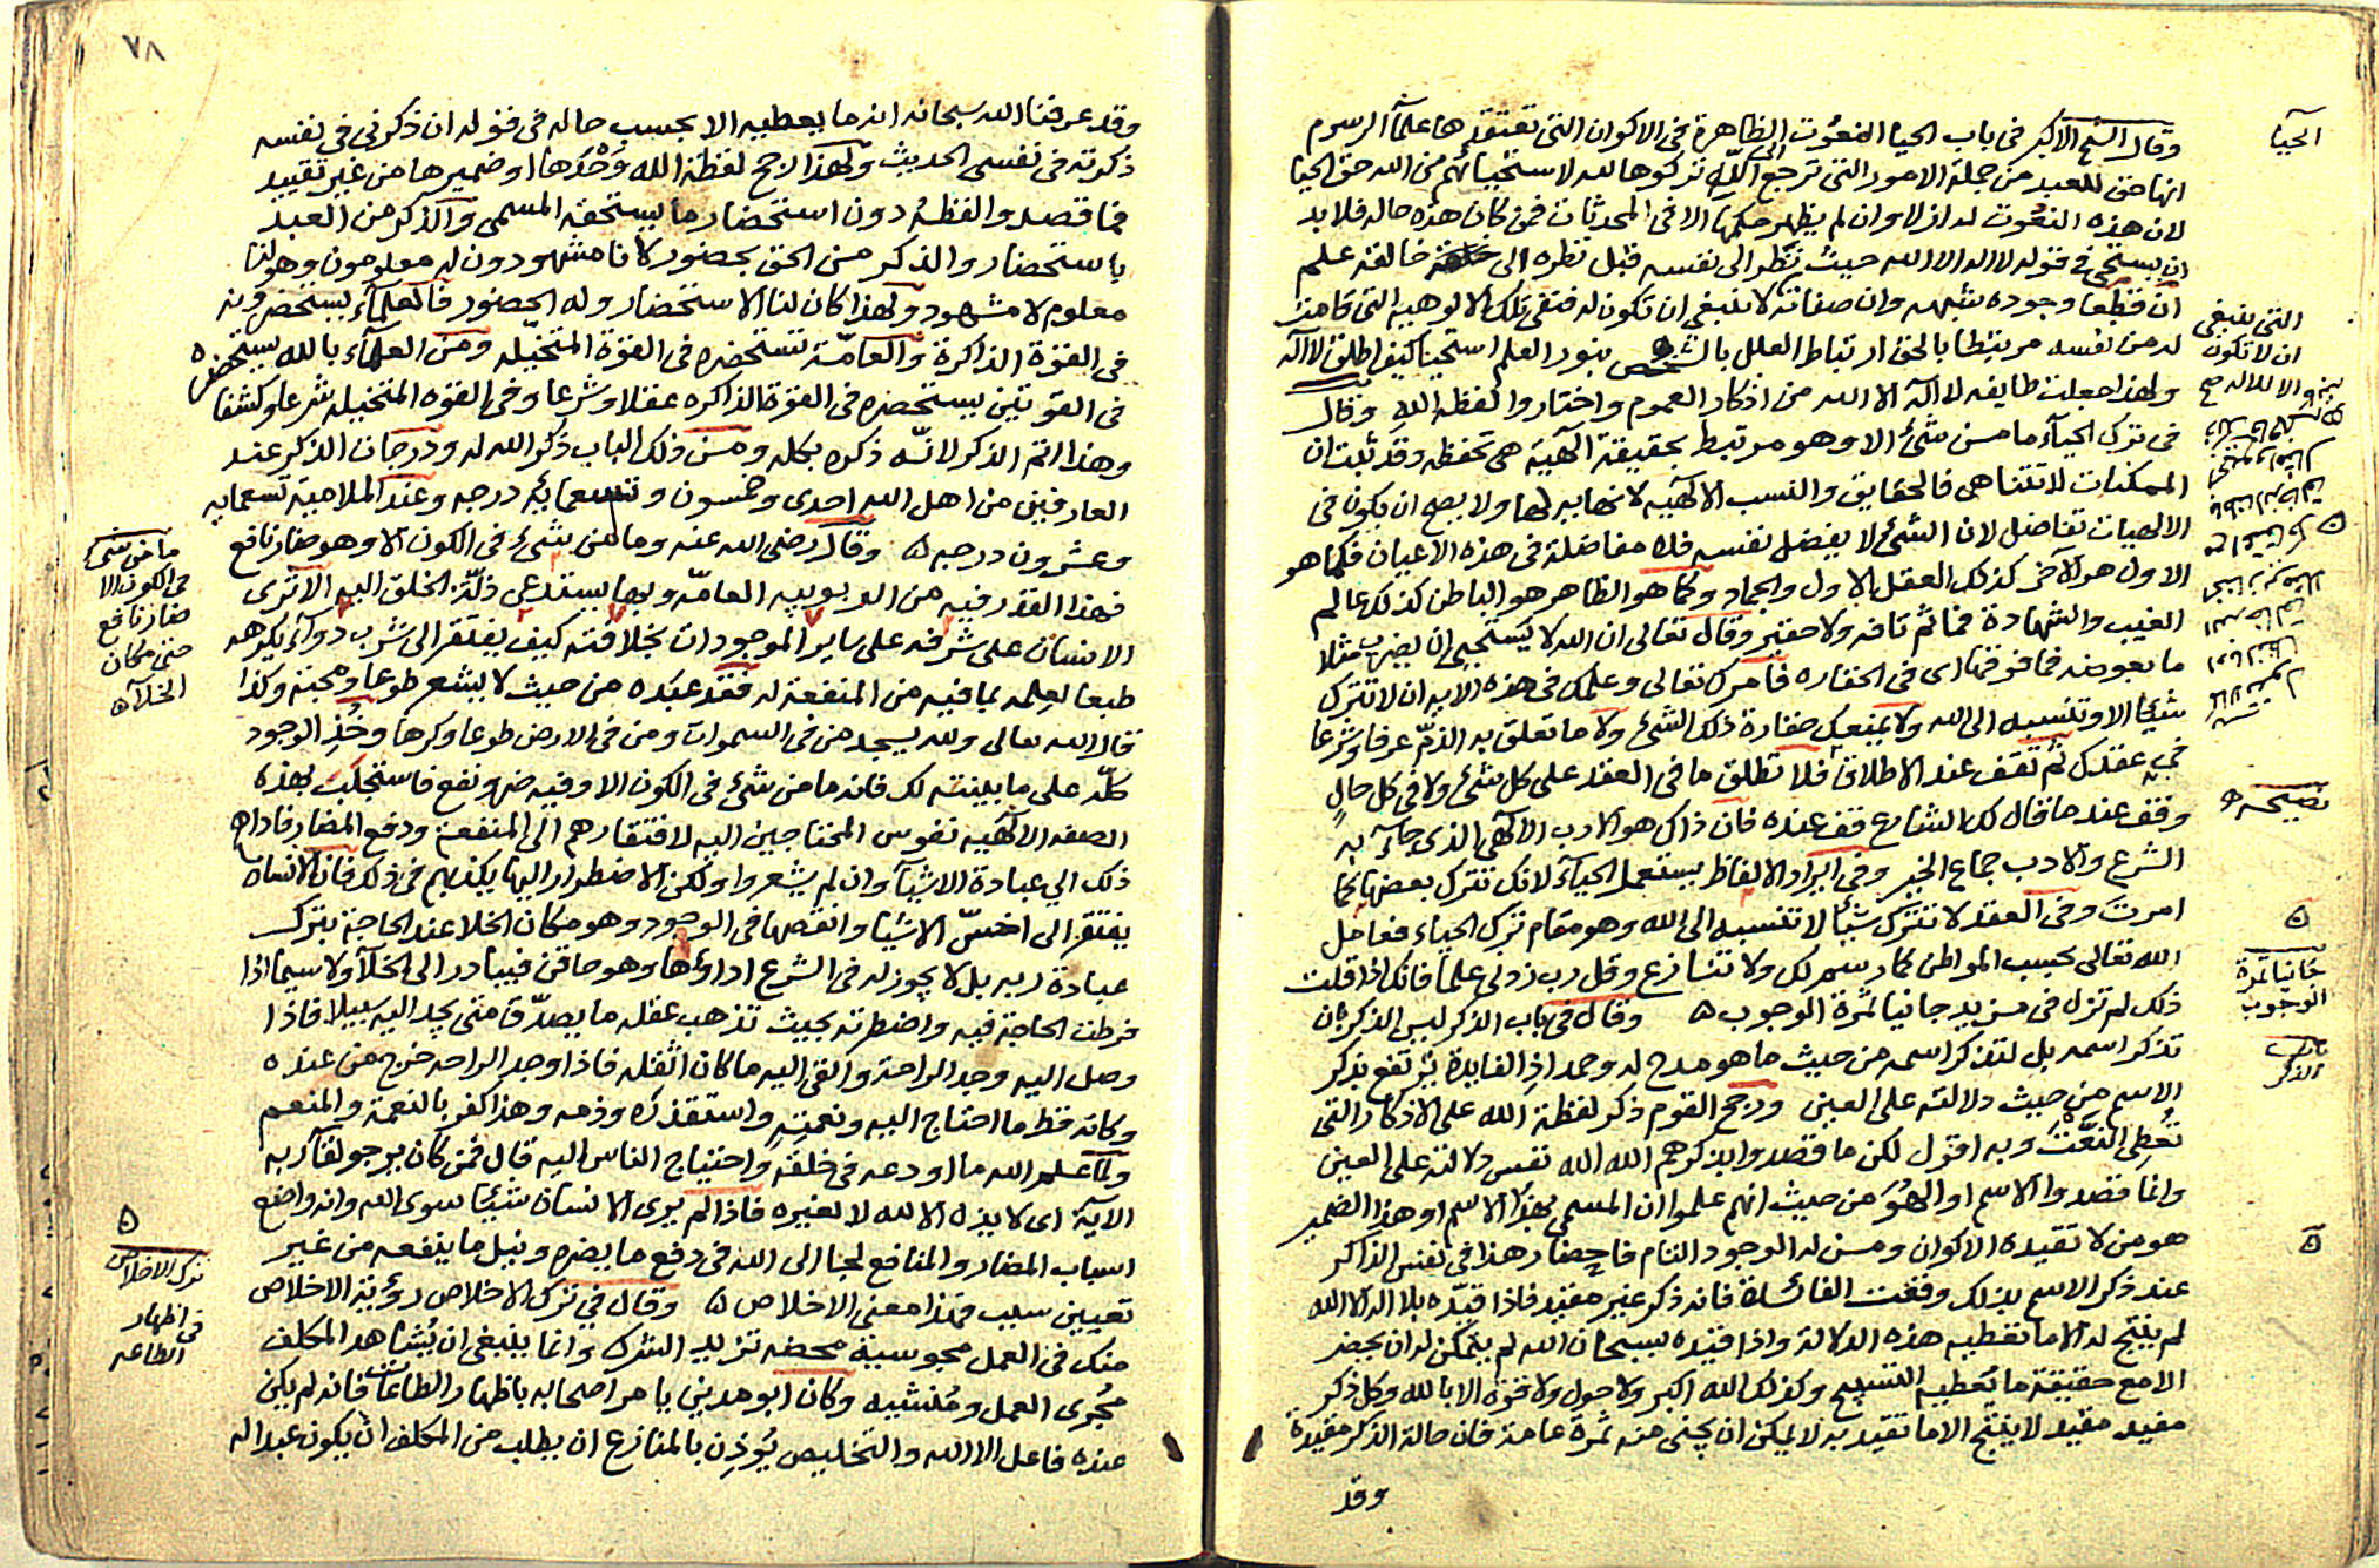 وقال الشيخ الاكبر فى باب الحيا النعوت الظاهرة فى الاكوان التى تعتقدها علمآ الرسوم
انها حق للعبد من جملة الامور التى ترجع الى الله تركوها لله لاستحيائهم من الله حق الحيا
لان هذه النعوت له ازلا وان لم يظهر حكمها الا فى المحدثات فمن كان هذه حاله فلا بد
ان يستحى فى قوله لا اله الا الله حيث نظر الى نفسه قبل نظره الى خالقه علم
ان قطعا وجوده شبهه وان صفاته لا ينبغى ان تكون له فنفى تلك الالوهيه التى قامت
له من نفسه مرتبطا بالحق ارتباط العلل بالشخص بنور العلم استحيا كيف اطلق لا اله
ولهذا جعلت طايفه لا اله الا الله من اذكار العموم واختاروا لفظه الله وقال
فى ترك الحيآء ما من شئ الا وهو مرتبط بحقيقة الهية هى تحفظه وقد ثبت ان
الممكنات لا تتناهى فالحقايق والنسب الالهيه لا نهايه لها ولا يصح ان يكون فى
الالهيات تفاضل لان الشئ لا يفضل نفسه فلا مفاضلة فى هذه الاعيان فكما هو
الاول هو الآخر كذلك العقل الاول والجماد وكما هو الظاهر هو الباطن كذلك عالم
الغيب والشهادة فما ثم تافه ولا حقير وقال تعالى ان الله لا يستحيى ان يضرب مثلا
ما بعوضه فما فوقها اى فى الحقاره فامرك تعالى وعلمك فى هذه الايه ان لا تترك
شيئا الا وتنسبه الى الله ولا يمنعك حقارة ذلك الشئ ولا ما تعلق به الذم عرفا وشرعا
فى عقدك ثم تقف عند الاطلاق فلا تطلق ما فى العقد على كل شئ ولا فى كل حال
وقف عند ما قال لك الشارع قف عنده فان ذاك هو الادب الالهى الذى جآء به
الشرع والادب جماع الخير وفى ايراد الالفاظ يستعمل الحيآء لانك تترك بعضها كما
امرت وفى العقد لا تترك شيئا لا تنسبه الى الله وهو مقام ترك الحياء فعامل
الله تعالى بحسب المواطن كما رسم لك ولا تنازع وقل رب زدنى علما فانك اذا قلت
ذلك لم تزل فى مزيد جانيا ثمرة الوجوب ه وقال فى باب الذكر ليس الذكر بان
تذكر اسمه بل لتذكر اسمه من حيث ما هو مدح له وحمد اذ الفايدة ترتفع بذكر
الاسم من حيث دلالته على العين ورجح القوم ذكر لفظة الله على الاذكار التى
تعطى النعت وبه اقول لكن ما قصدوا بذكرهم الله الله نفس دلالته على العين
وانما قصدوا الاسم او الهو من حيث انهم علموا ان المسمى بهذا الاسم او هذا الضمير
هو من لا تقيده الاكوان ومن له الوجود التام فاحضار هذا فى نفس الذاكر
عند ذكر الاسم بذلك وقعت الفائدة فانه ذكر غير مقيد فاذا قيده بلا اله الا الله
لم ينتج له الا ما تعطيه هذه الدلالة واذا قيده بسبحان الله لم يتمكن له ان يحضر
الا مع حقيقة ما يعطيه التسبيح وكذلك الله اكبر ولا حول ولا قوة الا بالله وكل ذكر
مفيد مقيد لا ينتج الا ما تقيد به لا يمكن ان يجنى منه ثمرة عامة فان حالة الذكر مقيدة
وقد
الحيا
التى ينبغى
ان لا تكون
نصيحه
ه
جانيا ثمرة
الوجوب
باب
الذكر
ه
٧٨
وقد عرفنا الله سبحانه انه ما يعطيه الا بحسب حاله فى قوله ان ذكرنى فى نفسه
ذكرته فى نفسى الحديث ولهذا رجح لفظة الله وحدها او ضميرها من غير تقييد
فما قصدوا لفظه دون استحضار ما يستحقه المسمى والذكر من العبد
باستحضار والذكر من الحق بحضور لانا مشهودون له معلومون وهو لنا
معلوم لا مشهود ولهذا كان لنا الاستحضار وله الحضور فالعلمآء يستحضرونه
فى القوة الذاكرة والعامة تستحضره فى القوة المتخيله ومن العلمآء بالله يستحضره
فى القوتين يستحضره فى القوة الذاكره عقلا وشرعا وفى القوه المتخيله شرعا وكشفا
وهذا اتم الذكر لانه ذكره بكله ومن ذلك الباب ذكر الله له ودرجات الذكر عند
العارفين من اهل الله احدى وخمسون وتسعمائه درجه وعند الملاميه تسعمايه
وعشرون درجه ه وقال رضى الله عنه وما من شئ فى الكون الا وهو ضار نافع
فهذا القدر فيه من الربوبيه العامه وبها يستدعى ذلة الخلق اليه الا ترى
الانسان على شرفه على ساير الموجودات بخلافته كيف يفتقر الى شرب دوآء يكرهه
طبعا لعلمه بما فيه من المنفعة له فقد عبده من حيث لا يشعر طوعا ومحبة وكذا
قال الله تعالى ولله يسجد من فى السموات ومن فى الارض طوعا وكرها وخذ الوجود
كله على ما بينته لك فانه ما من شئ فى الكون الا وفيه ضر ونفع فاستجلب بهذه
الصفه الالهيه نفوس المحتاجين اليه لافتقارهم الى المنفعة ودفع المضار فاداهم
ذلك الى عبادة الاشيآ وان لم يشعروا ولكن الاضطرار اليها يكذبهم فى ذلك فان الانسان
يفتقر الى اخس الاشيا وانقصها فى الوجود وهو مكان الخلا عند الحاجة يترك
عبادة ربه بل لا يجوز له فى الشرع اداؤها وهو حاقن فيبادر الى الخلآ ولا سيما اذا
فرطت الحاجة فيه واضطرته بحيث تذهب عقله ما يصدق متى يجد اليه سبيلا فاذا
وصل اليه وجد الراحة والقى اليه ما كان اثقله فاذا وجد الراحه خرج من عنده
وكانه قط ما احتاج اليه ونعمته واستقذره وذمه وهذا كفر بالنعمة والمنعم
ولما علم الله ما اودعه فى خلقه واحتياج الناس اليه قال فمن كان يرجو لقآء ربه
الآية اى لا يذه الا لله لا لغيره فاذا لم يرى الانسان شيئا سوى الله وانه واضع
اسباب المضار والمنافع لجا الى الله فى دفع ما يضره ونيل ما ينفعه من غير
تعيين سبب فهذا معنى الاخلاص ه وقال فى ترك الاخلاص رؤية الاخلاص
منك فى العمل مجوسية محضه تزيد الشرك وانما ينبغى ان يشاهد المكلف
مجرى العمل ومنشيه وكان ابو مدين يامر اصحابه باظهار الطاعات فانه لم يكن
عنده فاعل الا الله والتخليص يؤذن بالمنازع ان يطلب من المكلف ان يكون عبد الله
ما من شئ
فى الكون الا
ضار نافع
حتى مكان
الخلآ ه
ه
ترك الاخلاص
فى اظهار
الطاعه